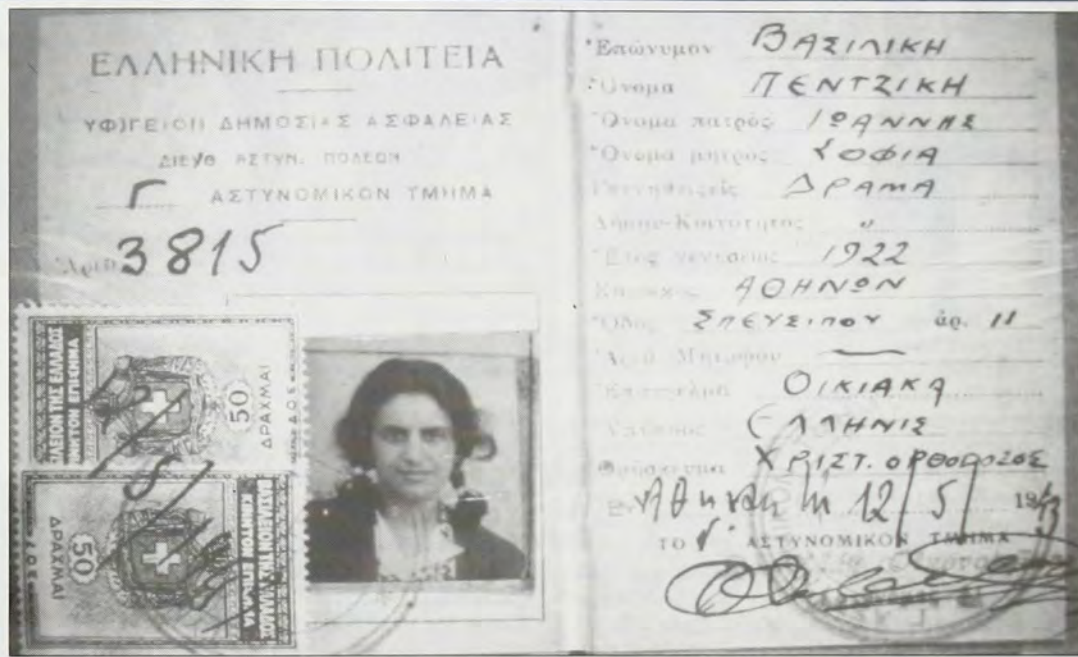 ΕΛΛΗΝΙΚΗ ΠΟΛΙΤΕΙΑ
ΔΗΜΟΣΙΑΣ ΑΣΦΑΛΕΙΑΣ
ΔΙΕΥΘ ΑΣΤΥΝ. ΠΟΛΕΩΝ
Γ ΑΣΤΥΝΟΜΙΚΟΝ ΤΜΗΜΑ
3815
50
ΔΡΑΧΜΑΙ
50
ΔΡΑΧΜΑΙ
Ἐπώνυμον ΒΑΣΙΛΙΚΗ
Ὄνομα ΠΕΝΤΖΙΚΗ
Ὄνομα πατρός ΙΩΑΝΝΗΣ
Ὄνομα μητρός ΣΟΦΙΑ
ΔΡΑΜΑ
Δήμου-Κοινότητος "
Ἔτος γεννήσεως 1922
Κάτοικος ΑΘΗΝΩΝ
Ὁδός ΣΠΕΥΣΙΠΟΥ ἀρ. 11
Ἀριθ. Μητρώου —
Ἐπάγγελμα ΟΙΚΙΑΚΑ
ΕΛΛΗΝΙΣ
Θρήσκευμα ΧΡΙΣΤ. ΟΡΘΟΔΟΞΟΣ
Ἐν Αθήναις τῇ 12/5/1943
ΤΟ Γ' ΑΣΤΥΝΟΜΙΚΟΝ ΤΜΗΜΑ